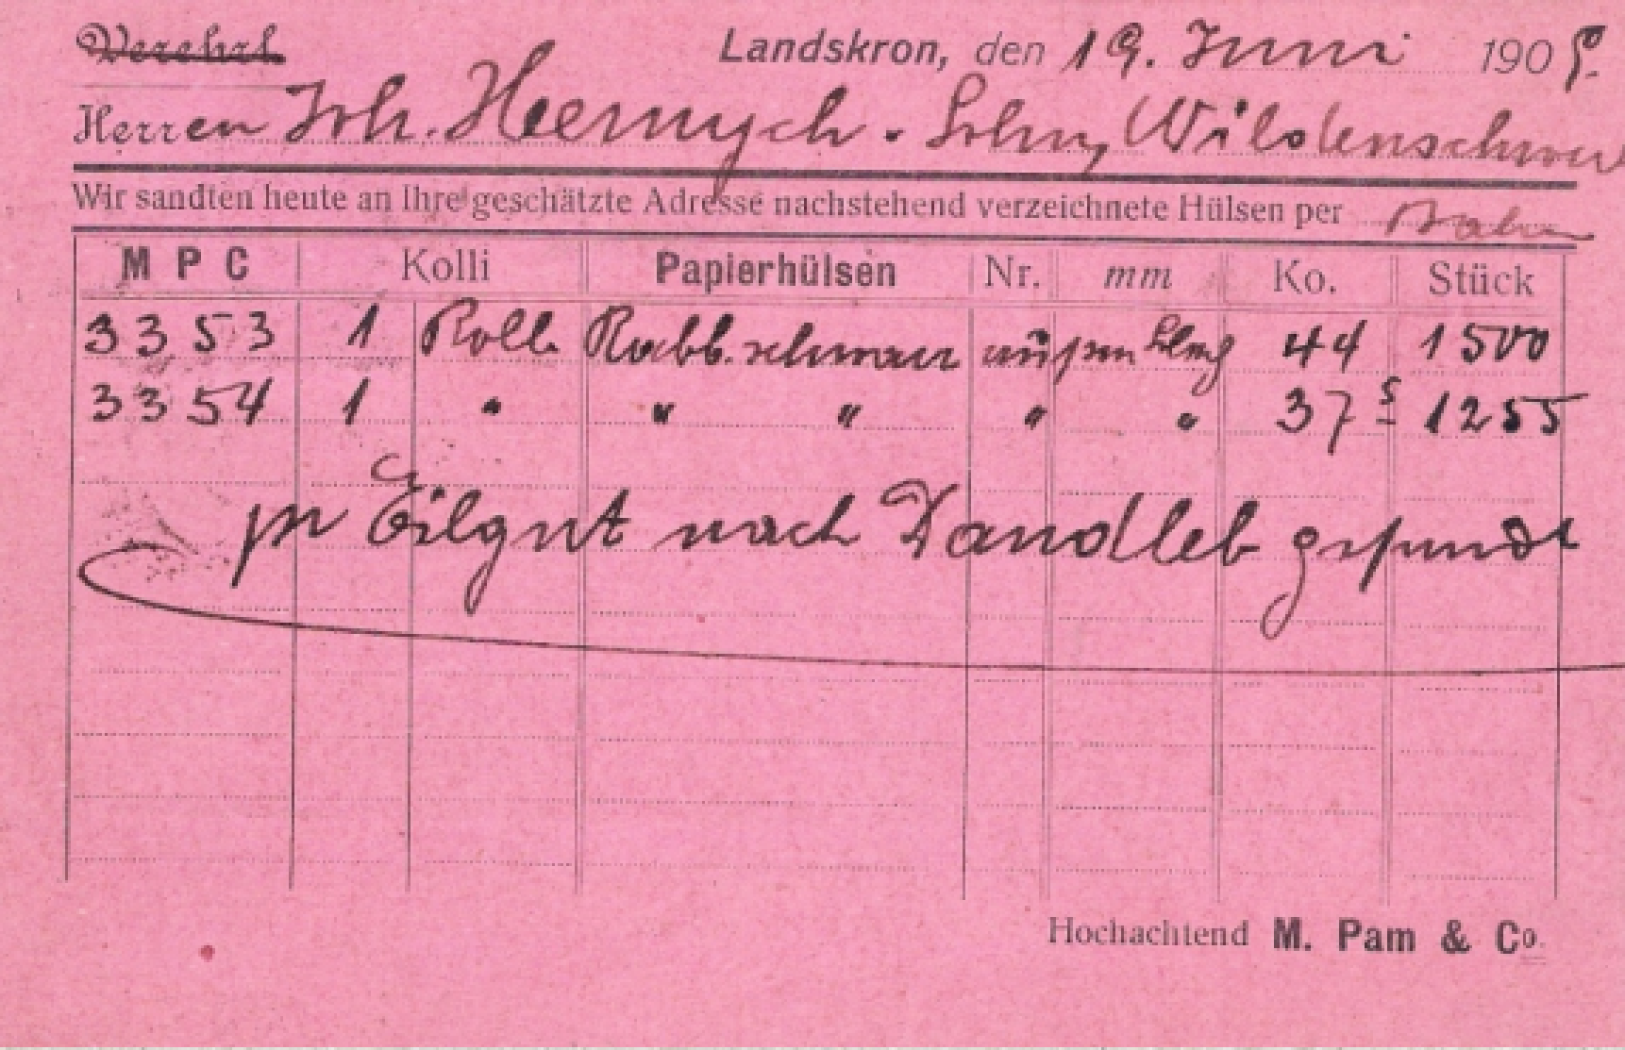 Verehrl.
Landskron, den 19. Juni 1909.
Herren Joh. Hernych & Sohn, Wildenschwert
Wir sandten heute an Ihre geschätzte Adresse nachstehend verzeichnete Hülsen per Bahn
M P C Kolli Papierhülsen Nr. mm Ko. Stück
3353 1 Rolle 44 1500
3354 1 " " " " " 37 5 1255
pr Eilgut nach Dandleb gesandt
Hochachtend M. Pam & Co.